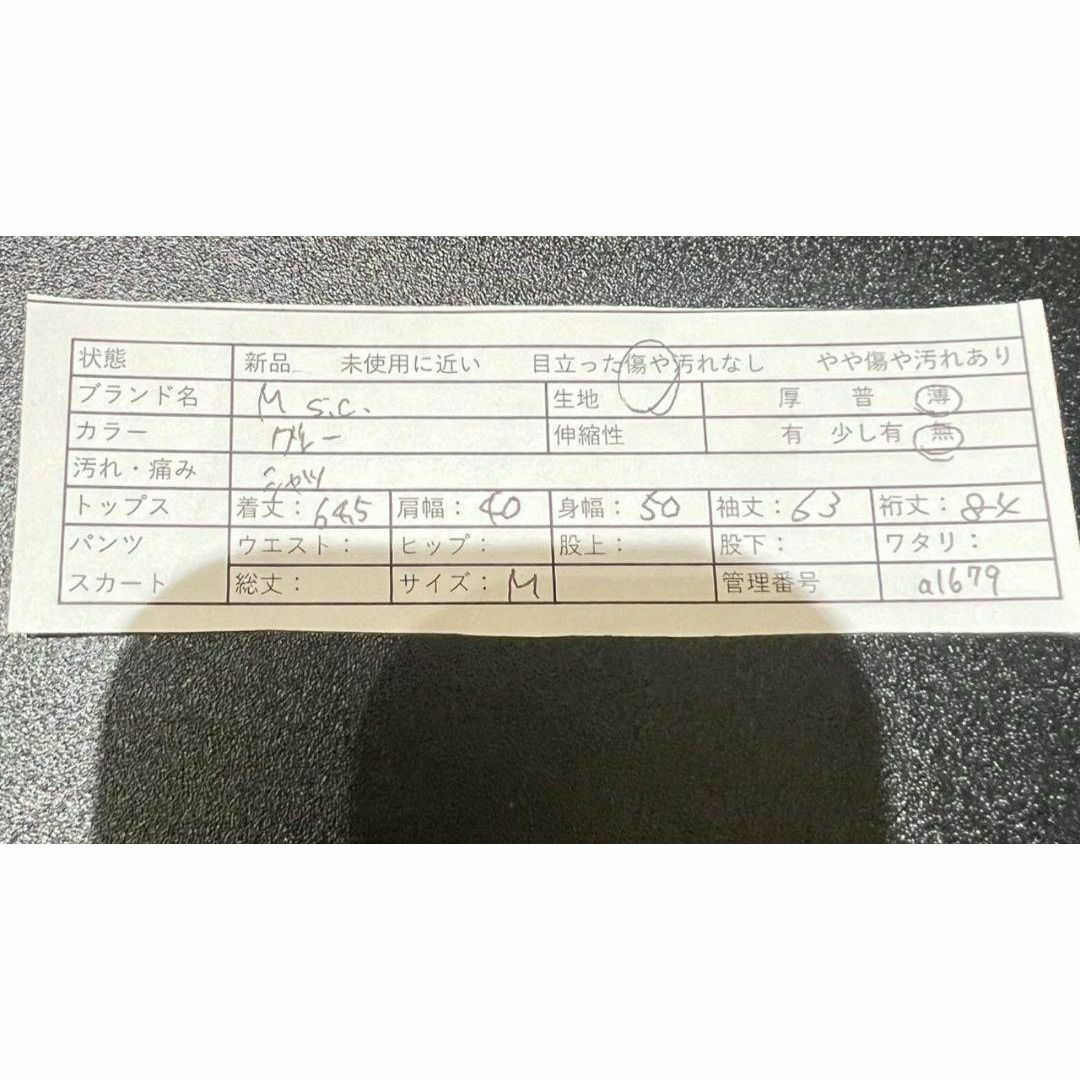 状態 新品 未使用に近い 目立った傷や汚れなし やや傷や汚れあり
ブランド名 M s.c. 生地 厚 普 薄
カラー グレー 伸縮性 有 少し有 無
汚れ・痛み シャツ
トップス 着丈：64.5 肩幅：40 身幅：50 袖丈：63 裄丈：84
パンツ ウエスト： ヒップ： 股上： 股下： ワタリ：
スカート 総丈： サイズ：M 管理番号 a1679